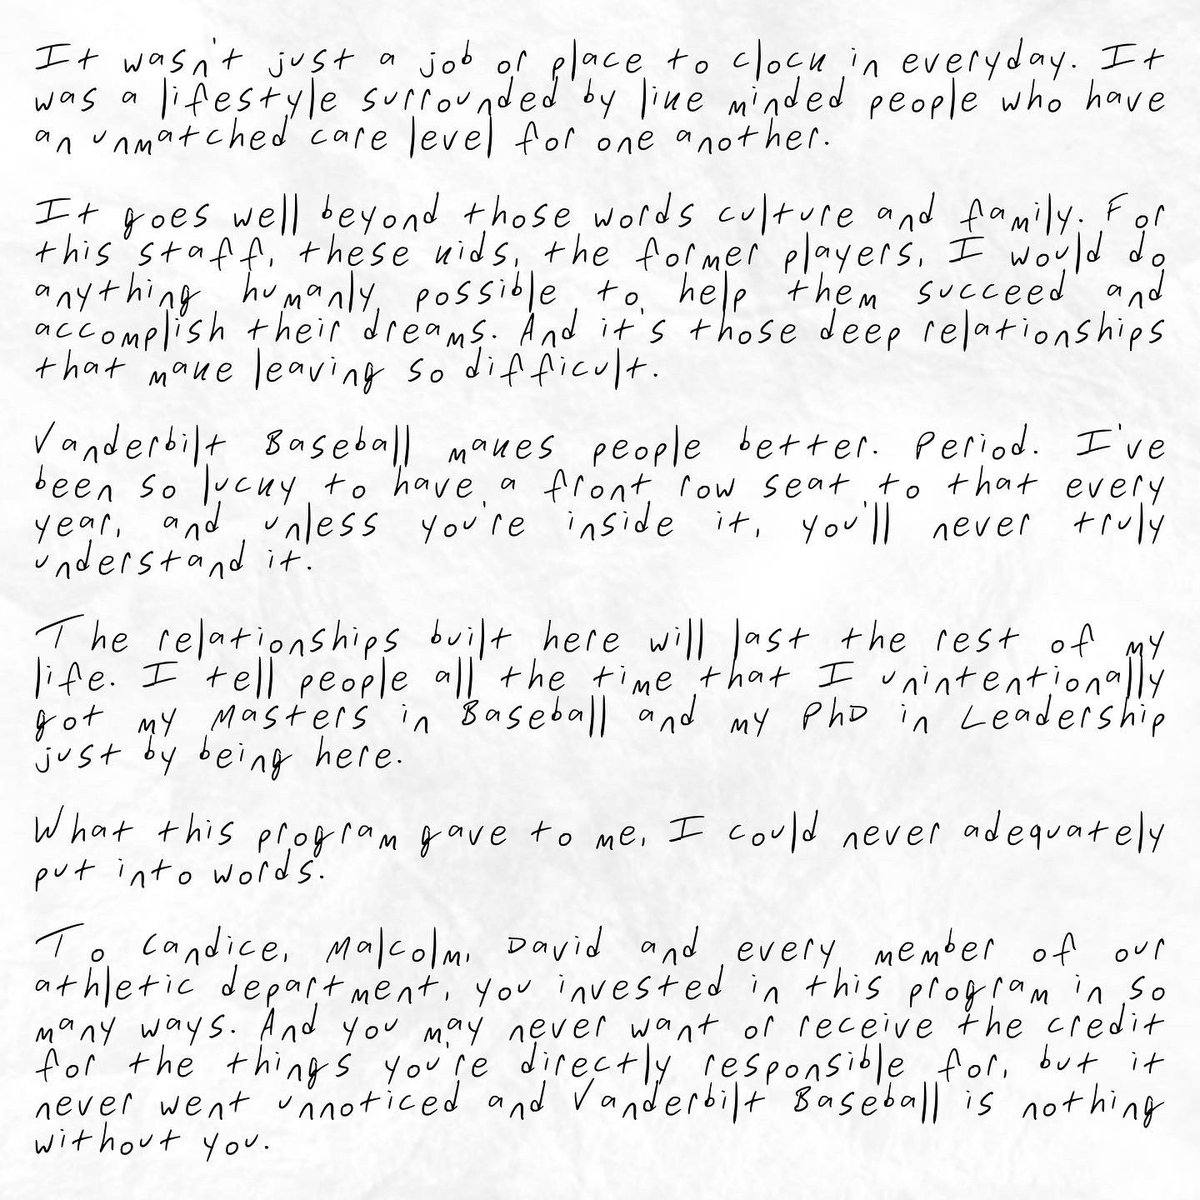 It wasn't just a job or place to clock in everyday. It
was a lifestyle surrounded by like minded people who have
an unmatched care level for one another.
It goes well beyond those words culture and family. For
this staff, these kids, the former players, I would do
anything humanly possible to help them succeed and
accomplish their dreams. And it's those deep relationships
that make leaving so difficult.
Vanderbilt Baseball makes people better. Period. I've
been so lucky to have a front row seat to that every
year, and unless you're inside it, you'll never truly
understand it.
The relationships built here will last the rest of my
life. I tell people all the time that I unintentionally
got my Masters in Baseball and my PhD in Leadership
just by being here.
What this program gave to me, I could never adequately
put into words.
To Candice, Malcolm, David and every member of our
athletic department, you invested in this program in so
many ways. And you may never want or receive the credit
for the things you're directly responsible for, but it
never went unnoticed and Vanderbilt Baseball is nothing
without you.